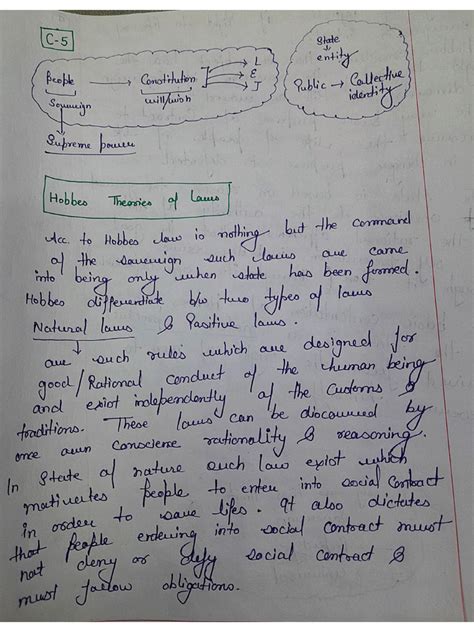 C-5
People → Constitution → L
→ E
→ J
Sovereign
will/wish
Supreme power
State
↓
entity
Public → Collective
identity
Hobbes Theories of Laws
Acc. to Hobbes law is nothing but the command
of the sovereign such laws are came
into being only when state has been formed.
Hobbes differentiate b/w two types of laws
Natural laws & Positive laws.
are such rules which are designed for
good/Rational conduct of the human being
and exist independently of the customs &
traditions. These laws can be discovered by
once own conscience rationality & reasoning.
In State of nature such law exist which
motivates people to enter into social contract
in order to save lifes. It also dictates
that people entering into social contract must
not deny or defy social contract &
must follow obligations.